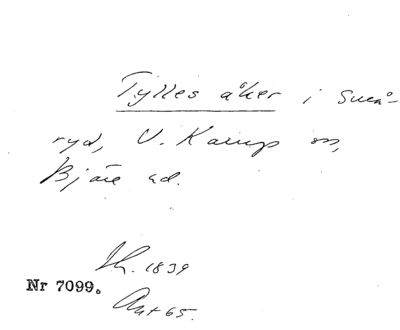 Tylles åker i Små-
ryd, V. Karup sn,
Bjäre hd.
Sk. 1839
Nr 7099.
Avt 65.